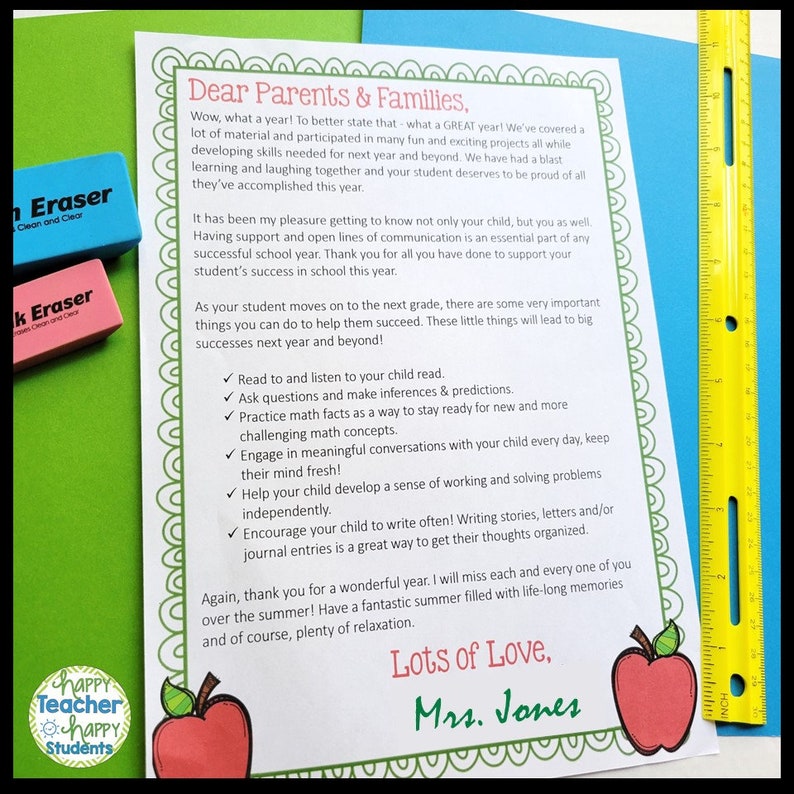 Dear Parents & Families,
Wow, what a year! To better state that - what a GREAT year! We've covered a
lot of material and participated in many fun and exciting projects all while
developing skills needed for next year and beyond. We have had a blast
learning and laughing together and your student deserves to be proud of all
they've accomplished this year.
It has been my pleasure getting to know not only your child, but you as well.
Having support and open lines of communication is an essential part of any
successful school year. Thank you for all you have done to support your
student's success in school this year.
As your student moves on to the next grade, there are some very important
things you can do to help them succeed. These little things will lead to big
successes next year and beyond!
✓ Read to and listen to your child read.
✓ Ask questions and make inferences & predictions.
✓ Practice math facts as a way to stay ready for new and more
challenging math concepts.
✓ Engage in meaningful conversations with your child every day, keep
their mind fresh!
✓ Help your child develop a sense of working and solving problems
independently.
✓ Encourage your child to write often! Writing stories, letters and/or
journal entries is a great way to get their thoughts organized.
Again, thank you for a wonderful year. I will miss each and every one of you
over the summer! Have a fantastic summer filled with life-long memories
and of course, plenty of relaxation.
Lots of Love,
Mrs. Jones
Eraser
Clean and Clear
k Eraser
rases Clean and Clear
happy
Teacher
happy
Students
INCH
1
2
3
4
5
6
7
8
9
10